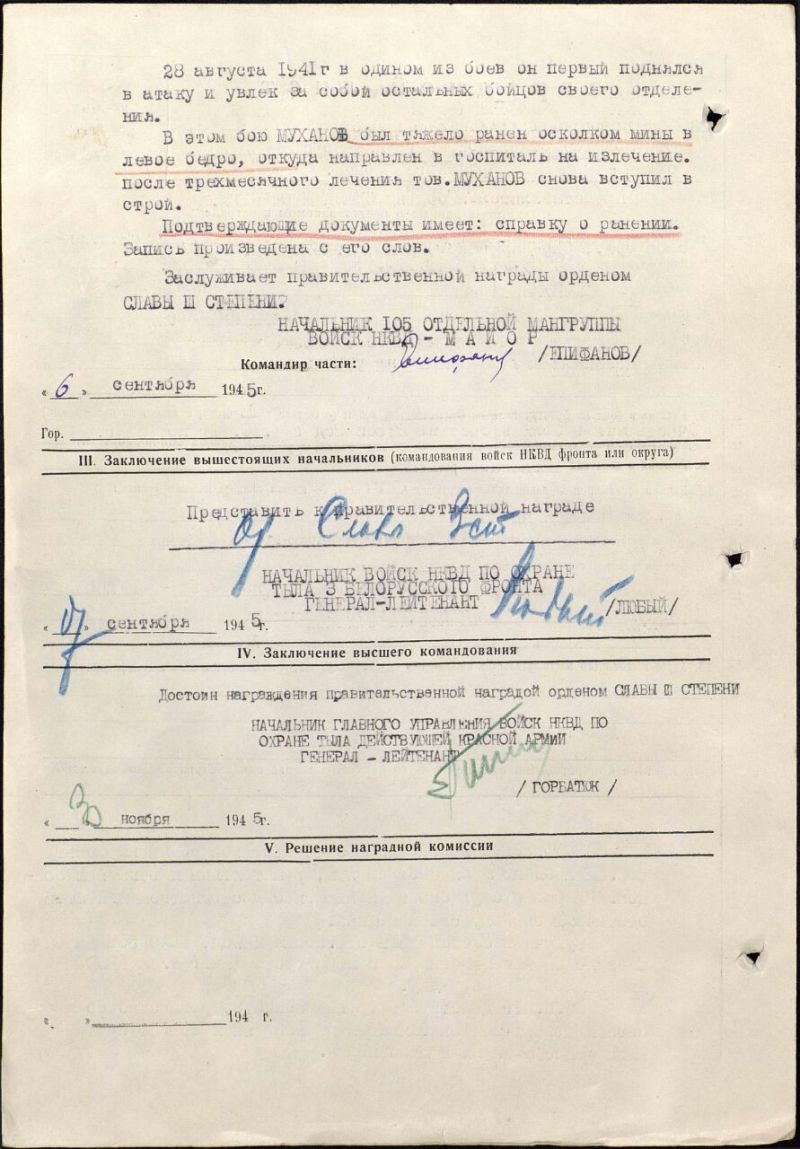 28 августа 1941г в одином из боев он первый поднялся
в атаку и увлек за собой остальных бойцов своего отделе-
ния.
В этом бою МУХАНОВ был тяжело ранен осколком мины в
левое бедро, откуда направлен в госпиталь на излечение.
после трехмесячного лечения тов.МУХАНОВ снова вступил в
строй.
Подтверждающие документы имеет: справку о ранении.
Запись произведена с его слов.
Заслуживает правительственной награды орденом
СЛАВЫ Ш СТЕПЕНИ.
НАЧАЛЬНИК 105 ОТДЕЛЬНОЙ МАНГРУППЫ
ВОЙСК НКВД - М А Й О Р
Командир части: /ЕПИФАНОВ/
« 6 » сентября 1945г.
Гор.
III. Заключение вышестоящих начальников (командования войск НКВД фронта или округа)
Представить к правительственной награде
Ор Славы 3 ст
НАЧАЛЬНИК ВОЙСК НКВД ПО ОХРАНЕ
ТЫЛА 3 БЕЛОРУССКОГО ФРОНТА
ГЕНЕРАЛ-ЛЕЙТЕНАНТ Любый /ЛЮБЫЙ/
« » сентября 1945г.
IV. Заключение высшего командования
Достоин награждения правительственной наградой орденом СЛАВЫ Ш СТЕПЕНИ
НАЧАЛЬНИК ГЛАВНОГО УПРАВЛЕНИЯ ВОЙСК НКВД ПО
ОХРАНЕ ТЫЛА ДЕЙСТВУЮЩЕЙ КРАСНОЙ АРМИИ
ГЕНЕРАЛ - ЛЕЙТЕНАНТ
/ ГОРБАТЮК /
« 3 » ноября 1945г.
V. Решение наградной комиссии
« » 194 г.